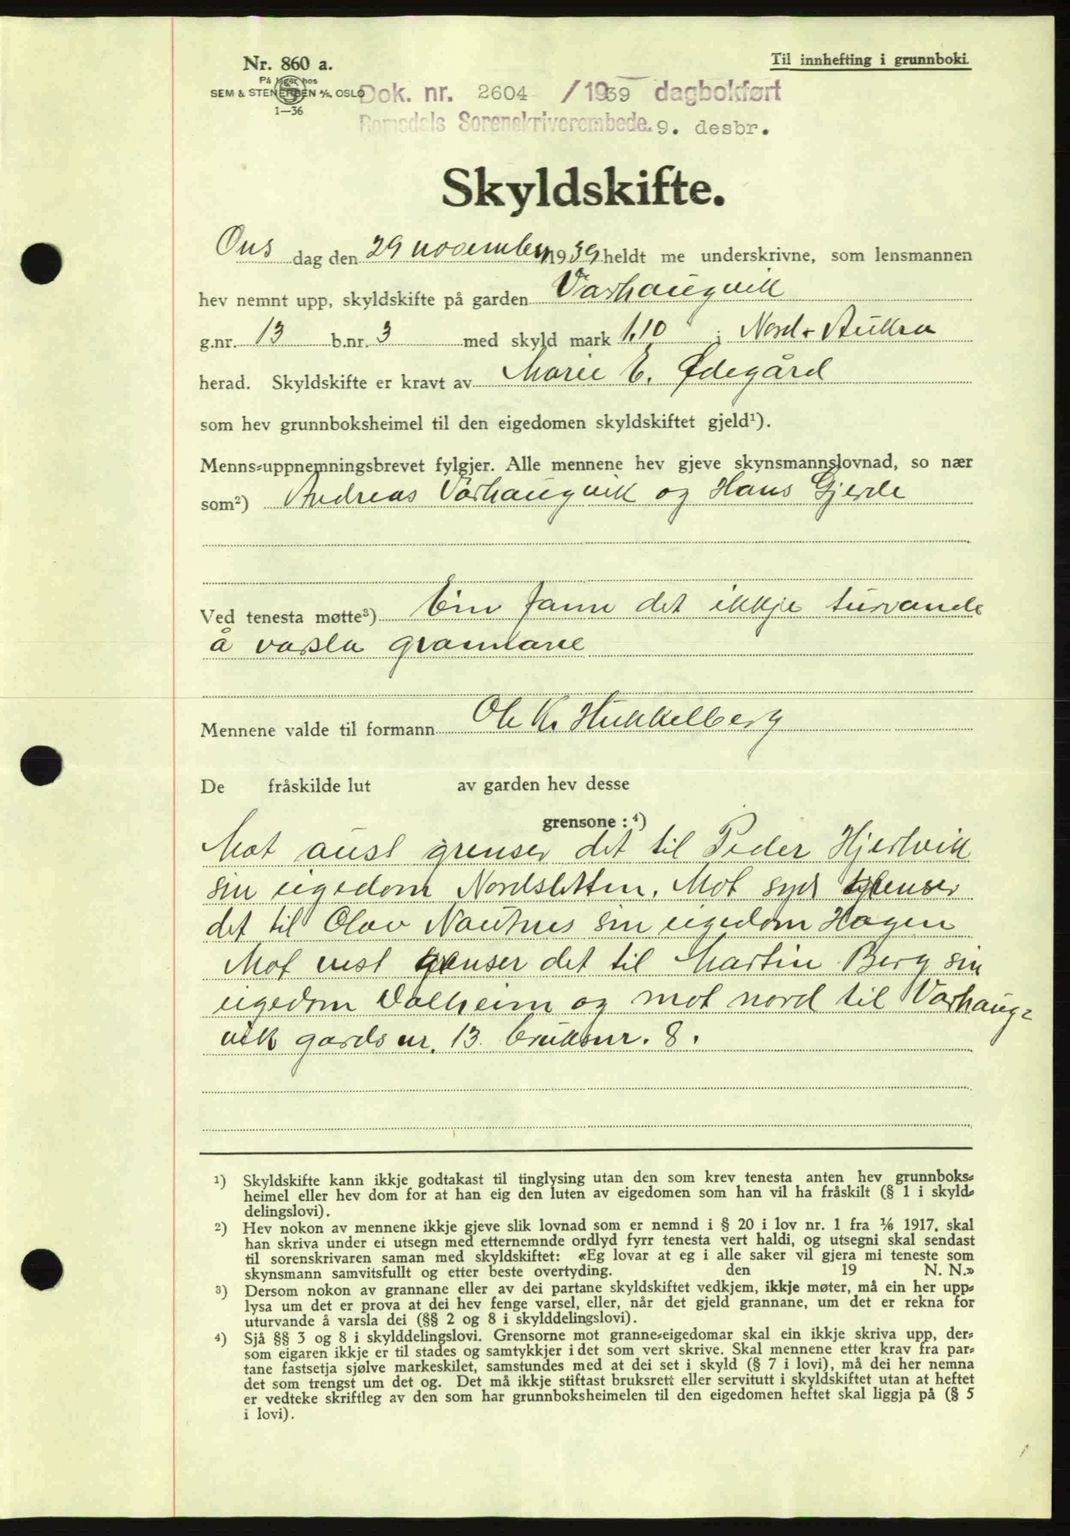 Nr. 860 a.
Til innhefting i grunnboki.
På lager hos
SEM & STENERSEN A/S, OSLO
1—36
Dok. nr. 2604 /1939 dagbokført
Romsdals Sorenskriverembede. 9. desbr.
Skyldskifte.
Ons dag den 29 november 1939 heldt me underskrivne, som lensmannen
hev nemnt upp, skyldskifte på garden Varhaugvik
g.nr. 13 b.nr. 3 med skyld mark 1,10 i Nord-Aukra
herad. Skyldskifte er kravt av Marie E. Ødegård
som hev grunnboksheimel til den eigedomen skyldskiftet gjeld¹).
Menns-uppnemningsbrevet fylgjer. Alle mennene hev gjeve skynsmannslovnad, so nær
som²) Andreas Varhaugvik og Hans Gjerde
Ved tenesta møtte³) Ein fann det ikkje turvande
å varsla grannane
Mennene valde til formann Ole K. Hukkelberg
De fråskilde lut av garden hev desse
grensone :⁴)
Mot aust grenser det til Peder Hjertvik
sin eigedom Nordsletten. Mot syd grenser
det til Olav Nautnes sin eigedom Hagen
Mot vest grenser det til Martin Berg sin
eigedom Valheim og mot nord til Varhaug-
vik gards nr. 13 bruksnr. 8.
¹) Skyldskifte kann ikkje godtakast til tinglysing utan den som krev tenesta anten hev grunnboks-
heimel eller hev dom for at han eig den luten av eigedomen som han vil ha fråskilt (§ 1 i skyld-
delingslovi).
²) Hev nokon av mennene ikkje gjeve slik lovnad som er nemnd i § 20 i lov nr. 1 fra 1/6 1917, skal
han skriva under ei utsegn med etternemnde ordlyd fyrr tenesta vert haldi, og utsegni skal sendast
til sorenskrivaren saman med skyldskiftet: «Eg lovar at eg i alle saker vil gjera mi teneste som
skynsmann samvitsfullt og etter beste overtyding. den 19 N. N.»
³) Dersom nokon av grannane eller av dei partane skyldskiftet vedkjem, ikkje møter, må ein her upp-
lysa um det er prova at dei hev fenge varsel, eller, når det gjeld grannane, um det er rekna for
uturvande å varsla dei (§§ 2 og 8 i skylddelingslovi).
⁴) Sjå §§ 3 og 8 i skylddelingslovi. Grensorne mot granne-eigedomar skal ein ikkje skriva upp, der-
som eigaren ikkje er til stades og samtykkjer i det som vert skrive. Skal mennene etter krav fra par-
tane fastsetja sjølve markeskilet, samstundes med at dei set i skyld (§ 7 i lovi), må dei her nemna
det som trengst um det og. Det må ikkje stiftast bruksrett eller servitutt i skyldskiftet utan at heftet
er vedteke skriftleg av den som har grunnboksheimelen til den eigedomen heftet skal liggja på (§ 5
i lovi).